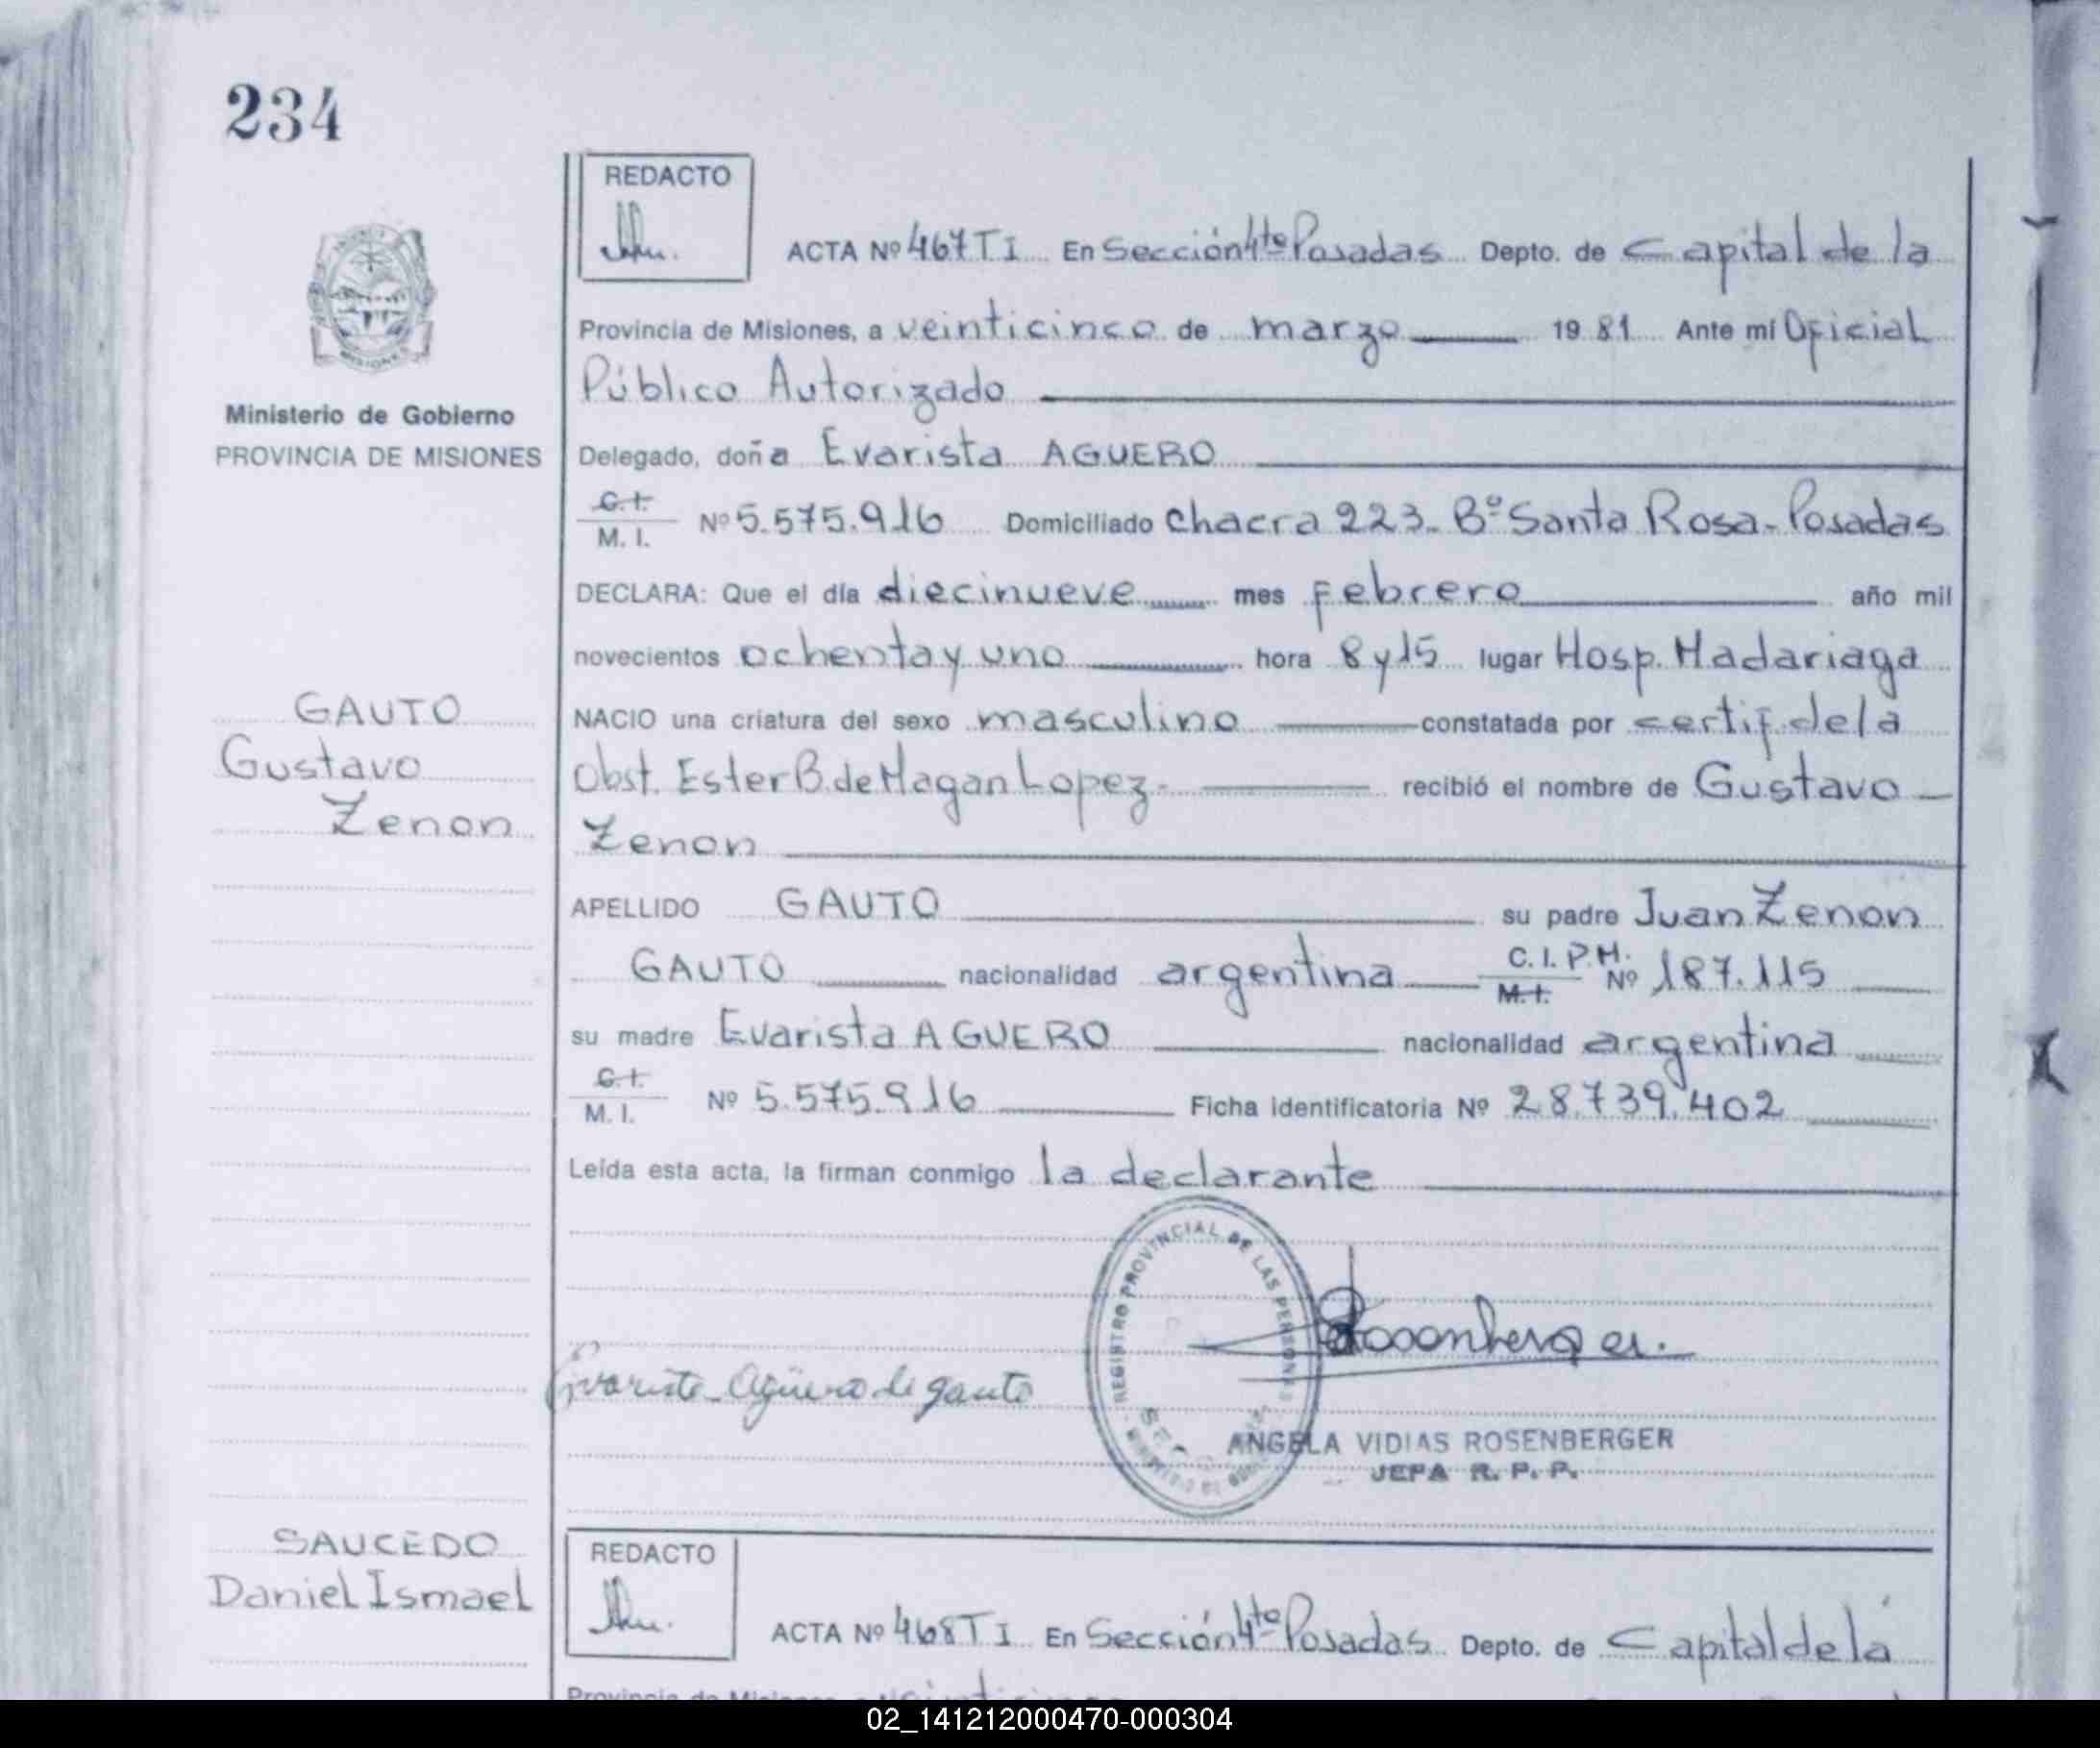 234
REDACTO
ACTA Nº 467 T I En Sección 4ta Posadas Depto. de Capital de la
Provincia de Misiones, a veinticinco de marzo 1981 Ante mí Oficial
Público Autorizado
Ministerio de Gobierno
PROVINCIA DE MISIONES
Delegado, doña Evarista AGUERO
C.I.
M. I. Nº 5.575.916 Domiciliado Chacra 223- Bº Santa Rosa- Posadas
DECLARA: Que el día diecinueve mes febrero año mil
novecientos ochenta y uno hora 8 y 15 lugar Hosp. Madariaga
GAUTO
Gustavo
Zenon
NACIO una criatura del sexo masculino constatada por certif. de la
Obst. Ester B. de Magan Lopez- recibió el nombre de Gustavo
Zenon
APELLIDO GAUTO su padre Juan Zenon
GAUTO nacionalidad argentina C.I.P.M. Nº 187.115
M.I.
su madre Evarista AGUERO nacionalidad argentina
C.I.
M. I. Nº 5.575.916 Ficha identificatoria Nº 28.739.402
Leída esta acta, la firman conmigo la declarante
REGISTRO PROVINCIAL DE LAS PERSONAS
Evarista Agüero de gauto
Rosenberger.
ANGELA VIDIAS ROSENBERGER
JEFA R. P. P.
SAUCEDO
Daniel Ismael
REDACTO
ACTA Nº 468 T I En Sección 4ta Posadas Depto. de Capital de la
Provincia de Misiones
02_141212000470-000304